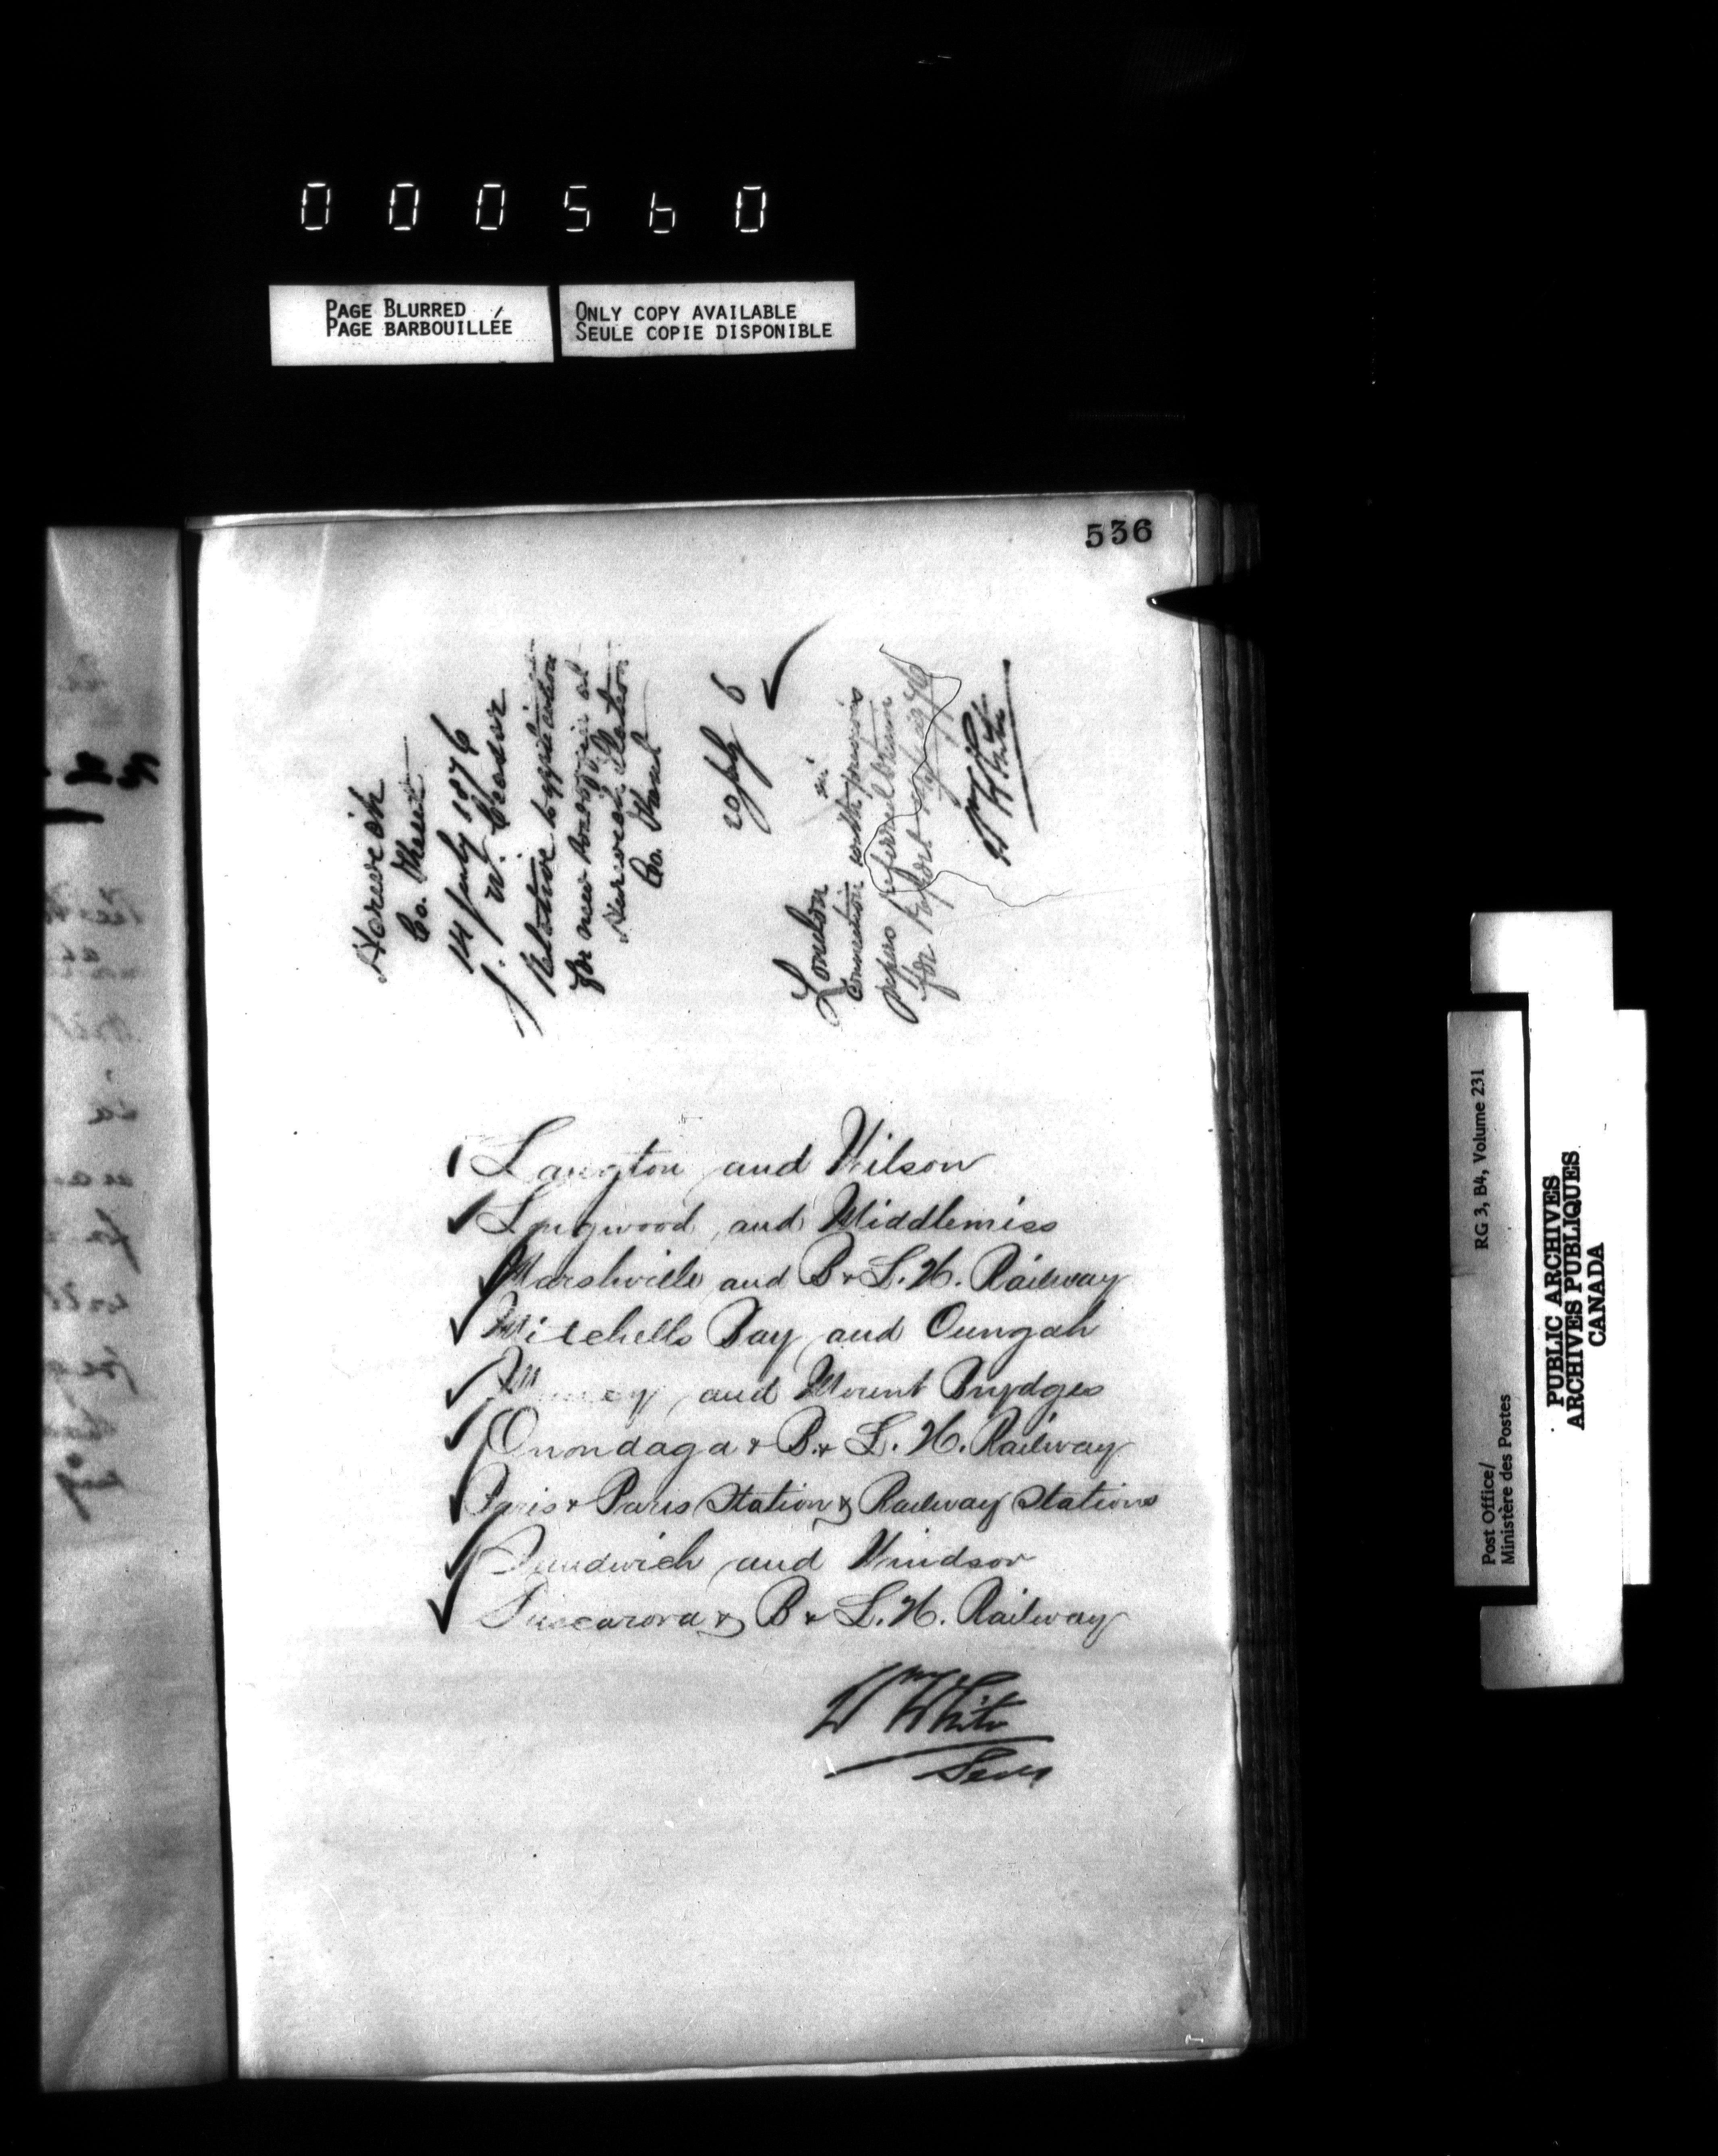 000560
PAGE BLURRED
PAGE BARBOUILLÉE
ONLY COPY AVAILABLE
SEULE COPIE DISPONIBLE
536
Harwich
Co. Kent
14 July 1876
J. W.
Relative to application
for new at
Harwich Station
Co. Kent
20 July 6
London
Connection with previous
papers referred
for Report July 1876
Wm White
Langton and Wilson
Longwood and Middlemiss
Marshville and B & L. H. Railway
Mitchells Bay and Oungah
Muncey and Mount Brydges
Onondaga & B. & L. H. Railway
Paris & Paris Station & Railway Stations
Sandwich and Windsor
Tuscarora & B & L. H. Railway
Wm White
Secy
RG 3, B4, Volume 231
Post Office/
Ministère des Postes
PUBLIC ARCHIVES
ARCHIVES PUBLIQUES
CANADA